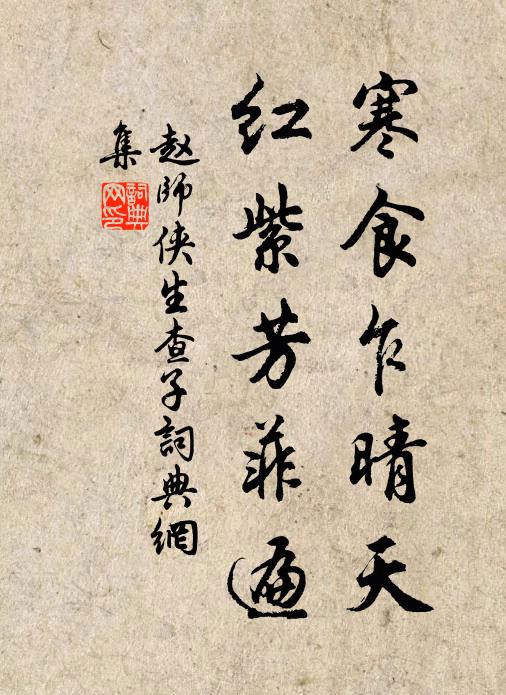 寒食乍晴天
红紫芳菲遍
赵师侠生查子詞典網
集
詞典
网印